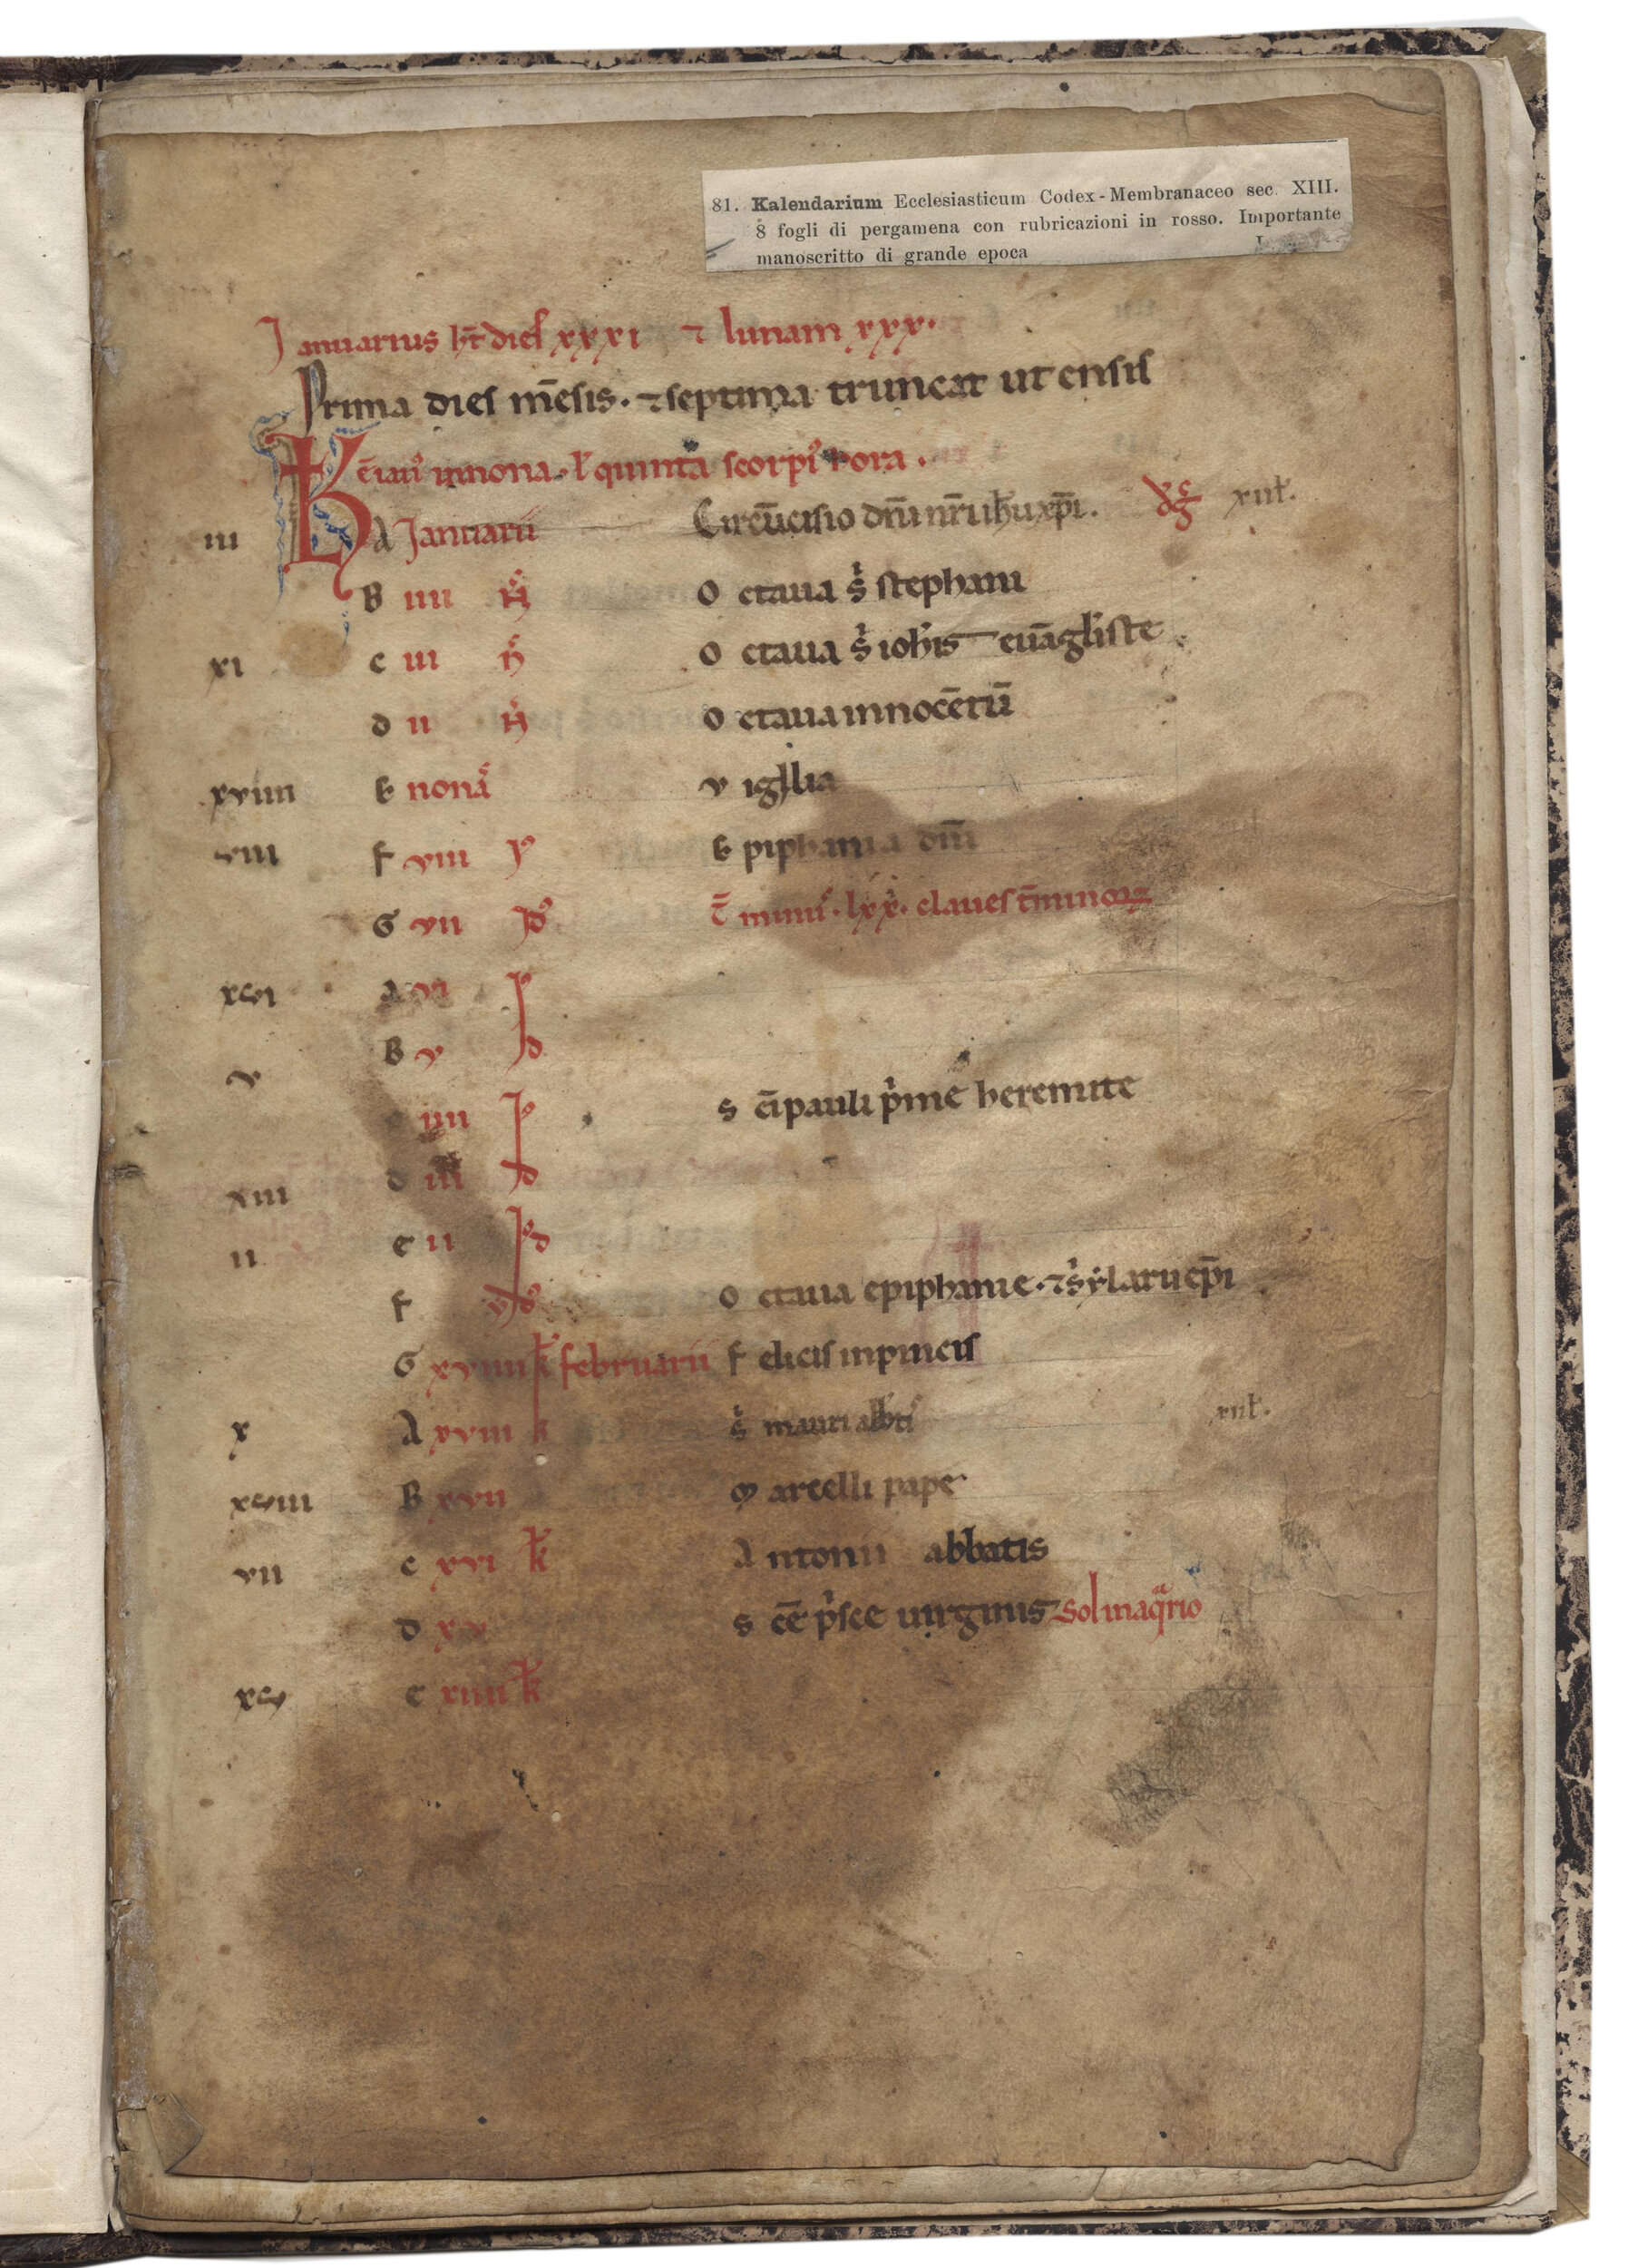 81. Kalendarium Ecclesiasticum Codex-Membranaceo sec. XIII.
8 fogli di pergamena con rubricazioni in rosso. Importante
manoscritto di grande epoca
Januarius ht̄ dies xxxi ⁊ lunam xxx.
Prima dies m̄esis. ⁊ septima truncat ut ensis
nona. l' quinta scorpi' hora.
iii KL A Januarii Circūcisio dn̄i nr̄i ihu xp̄i. xii l'.
B iiii N̄ Octaua s̄ stephani
xi c iii N̄ Octaua s̄ ioh'is euāgl'iste
d ii N̄ Octaua innocētū
xviiii e nonas vigilia
viii f viii Id' epiphania dn̄i
G vii Id' t̄mini. lxx. claues t̄minoꝝ
xvi A vi Id
v B v Id
iiii Id sc̄i pauli p'me heremite
xiii d iii Id
ii e ii Id
f Id' Octaua epiphanie. ⁊ s̄ ylarii ep̄i
G xviiii k' februarii felicis in pincis
x A xviii k s̄ mauri abb'ti xii l'.
xviii B xvii Marcelli pape
vii c xvi k' Antonii abbatis
d xv sc̄e p'sce uirginis Sol in aq̄rio
xv e xiiii k'